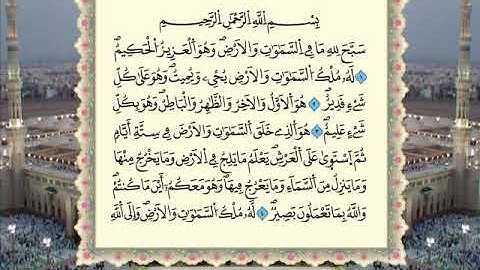 بِسْمِ اللَّهِ الرَّحْمَٰنِ الرَّحِيمِ
سَبَّحَ لِلهِ مَا فِي السَّمَٰوَٰتِ وَالْأَرْضِ وَهُوَ الْعَزِيزُ الْحَكِيمُ
١ لَهُ مُلْكُ السَّمَٰوَٰتِ وَالْأَرْضِ يُحْيِي وَيُمِيتُ وَهُوَ عَلَىٰ كُلِّ
شَيْءٍ قَدِيرٌ ٢ هُوَ الْأَوَّلُ وَالْآخِرُ وَالظَّٰهِرُ وَالْبَاطِنُ وَهُوَ بِكُلِّ
شَيْءٍ عَلِيمٌ ٣ هُوَ الَّذِي خَلَقَ السَّمَٰوَٰتِ وَالْأَرْضَ فِي سِتَّةِ أَيَّامٍ
ثُمَّ اسْتَوَىٰ عَلَى الْعَرْشِ يَعْلَمُ مَا يَلِجُ فِي الْأَرْضِ وَمَا يَخْرُجُ مِنْهَا
وَمَا يَنزِلُ مِنَ السَّمَاءِ وَمَا يَعْرُجُ فِيهَا وَهُوَ مَعَكُمْ أَيْنَ مَا كُنتُمْ
وَاللَّهُ بِمَا تَعْمَلُونَ بَصِيرٌ ٤ لَهُ مُلْكُ السَّمَٰوَٰتِ وَالْأَرْضِ وَإِلَى اللَّهِ